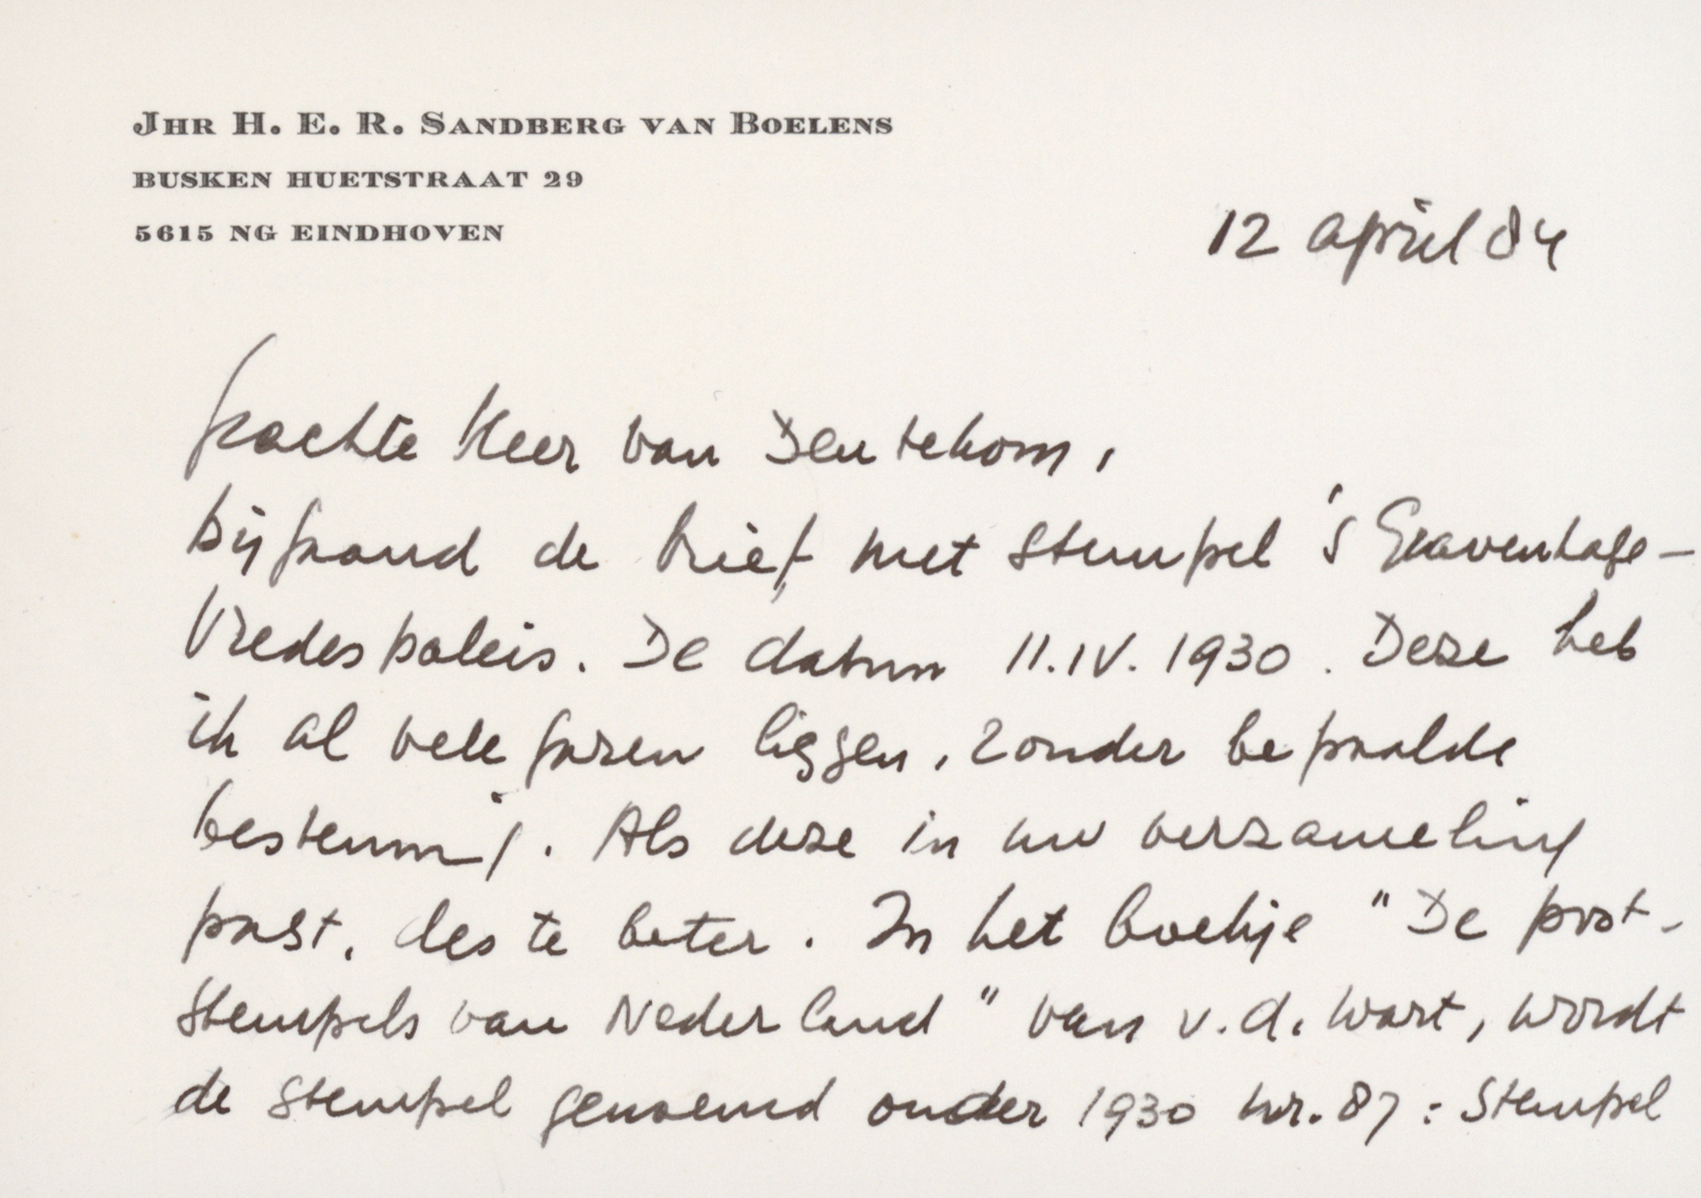 JHR H. E. R. SANDBERG VAN BOELENS
BUSKEN HUETSTRAAT 29
5615 NG EINDHOVEN
12 april 84
Geachte Heer van Deutekom,
bijgaand de brief met stempel 's Gravenhage-
Vredespaleis. De datum 11.IV.1930. Deze heb
ik al vele jaren liggen, zonder bepaalde
bestemm–g. Als deze in uw verzameling
past, des te beter. In het boekje "De post-
stempels van Nederland" van v.d. Wart, wordt
de stempel genoemd onder 1930 nr. 87: Stempel